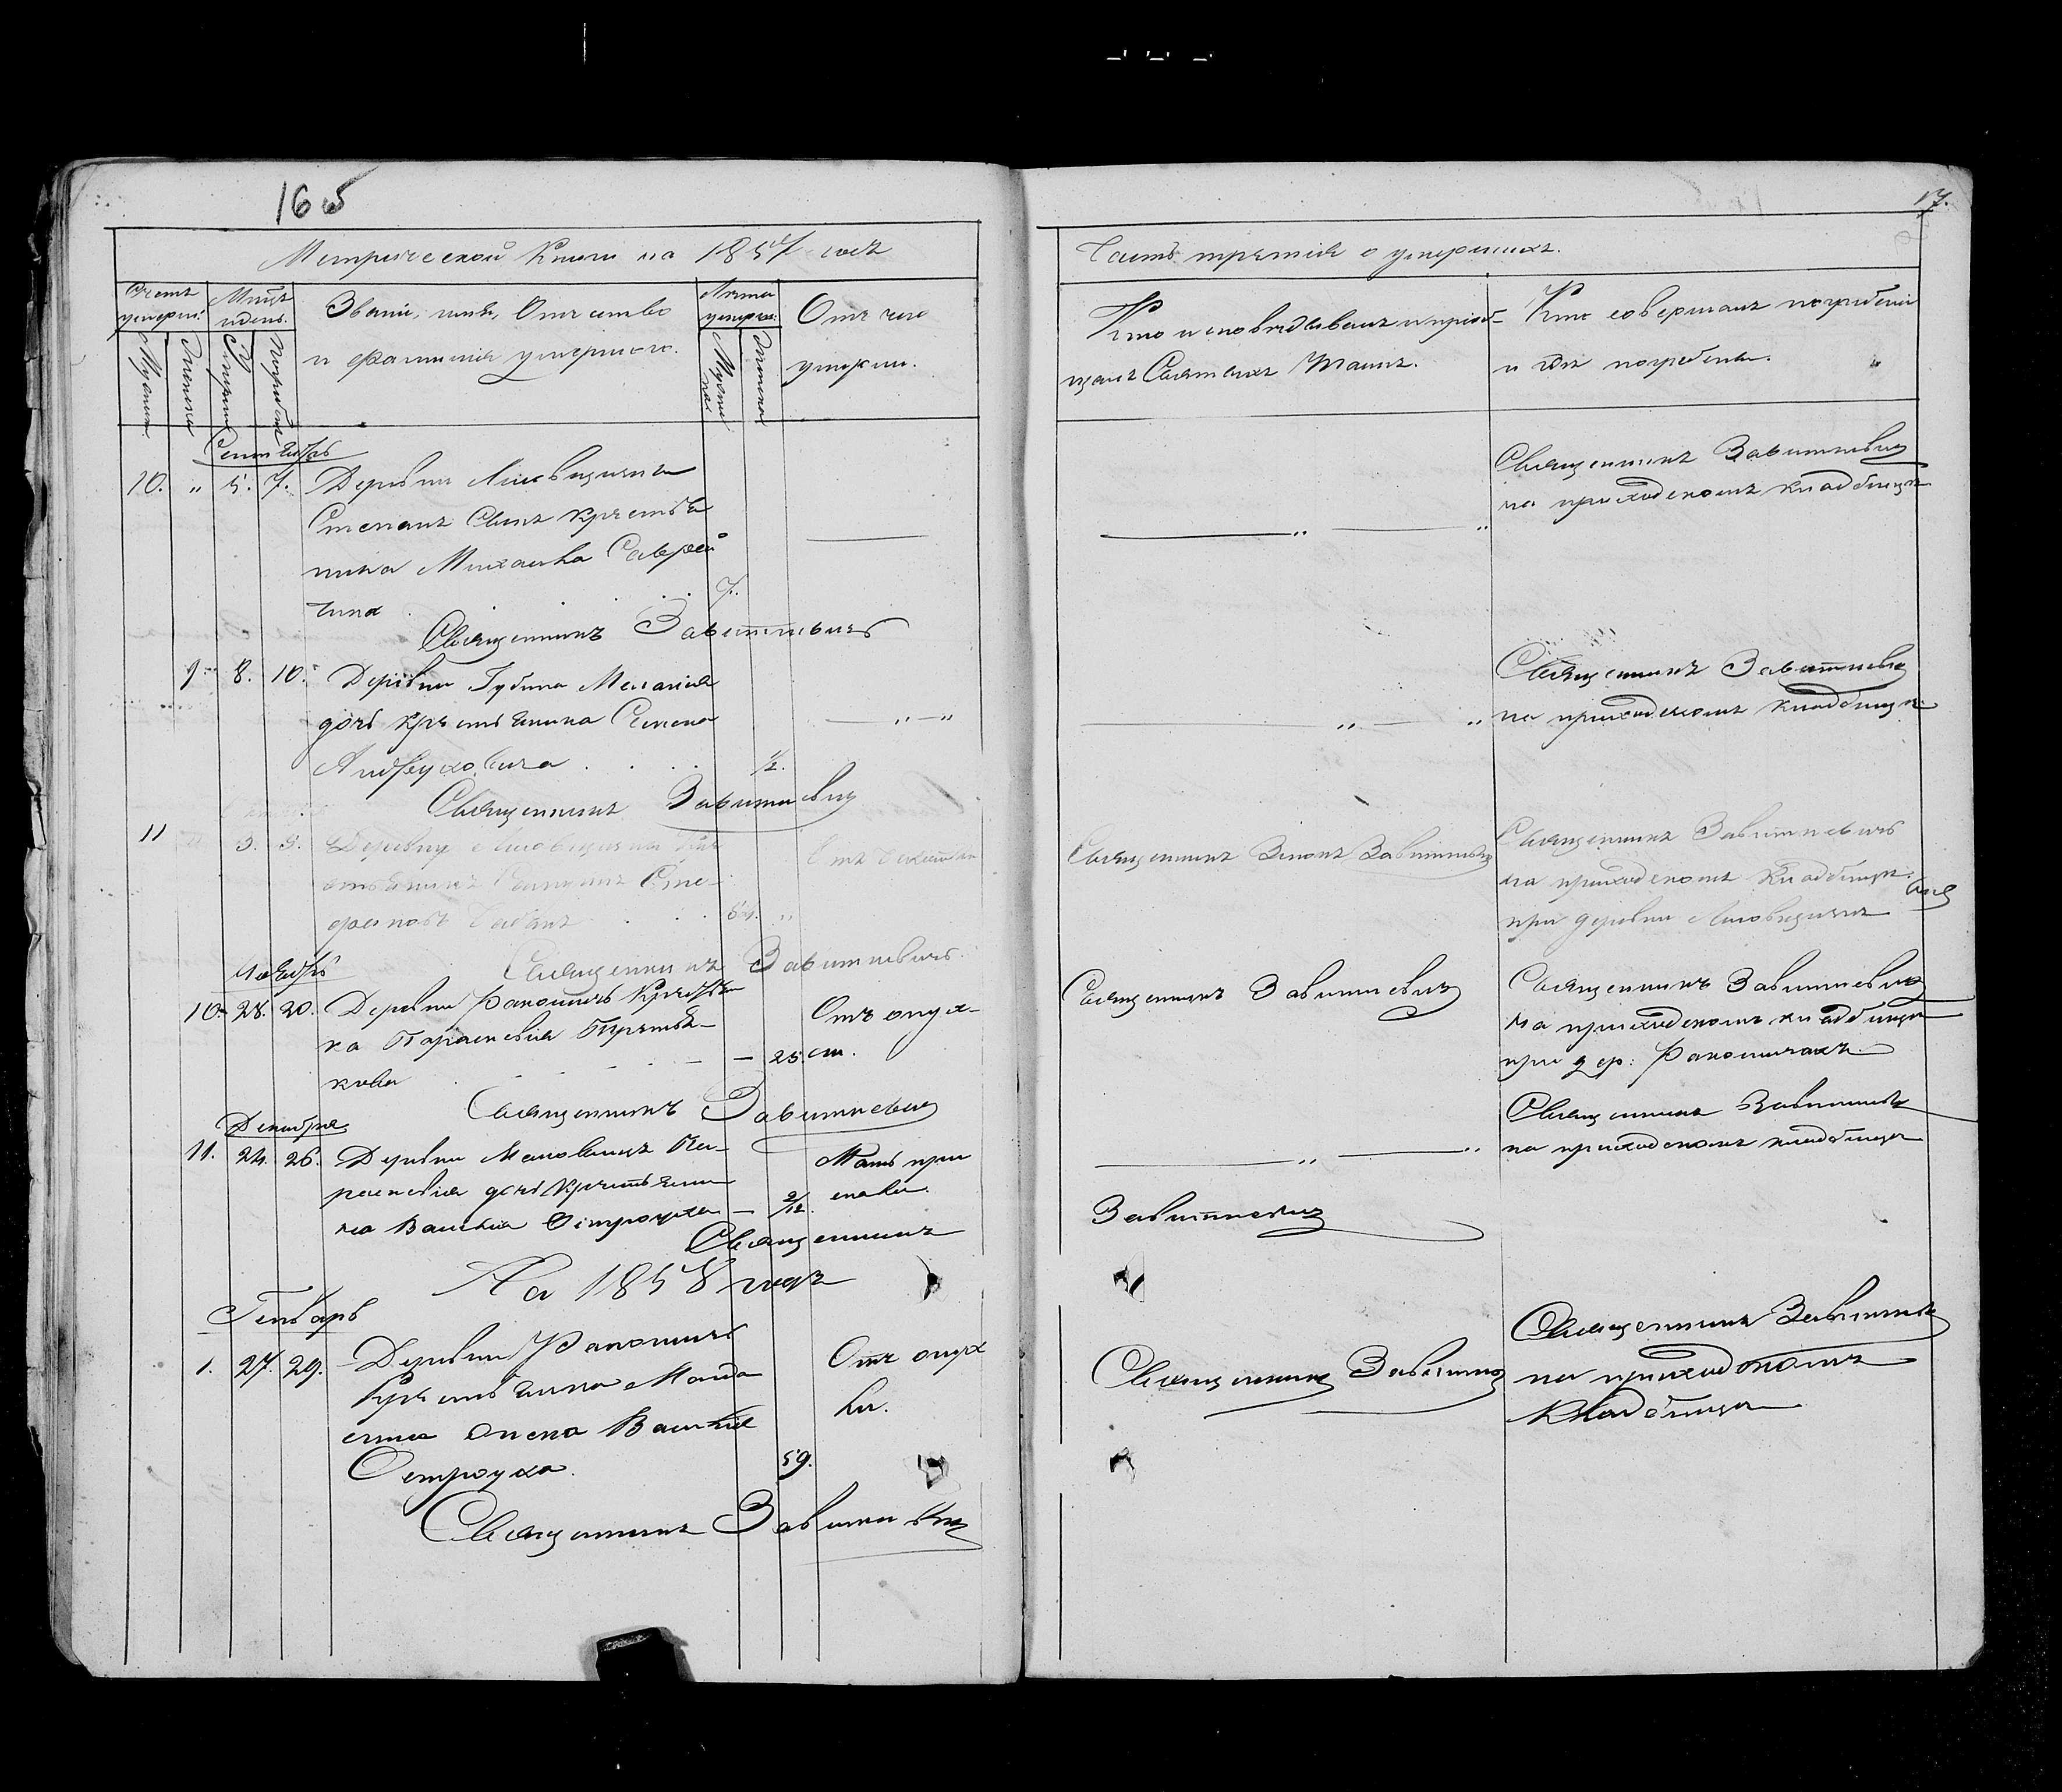 16 об
17.
Метрической Книги на 1857 годъ
Часть третія о умершихъ.
Счетъ умерш:
Мужеск:
Женски
Мѣсяц и день.
Смерти
Погребен
Званіе, имя, Отчество
и фамилія умершаго.
Лѣта умерш:
Мужескаго
Женска
Отъ чего
умеръ.
Кто исповѣдывалъ и пріоб-
щалъ Святыхъ Таинъ.
Кто совершалъ погребеніе
и гдѣ погребенъ.
Сентябрь
10. " 5. 7. Деревни
Степанъ сынъ крестья
нина Михаила
7.
Священникъ Завитневичъ
Священникъ Завитневичъ
на приходскомъ кладбищѣ
9 8. 10. Деревни Губина Меланія
дочь крестьянина Семена
Андреуховича 1/2.
Священникъ Завитневичъ
Священникъ Завитневичъ
на приходскомъ кладбищѣ
11 3. 5. Деревни
54. "
Священникъ Завитневичъ
Священникъ Зенонъ Завитневичъ
Священникъ Завитневичъ
на приходскомъ кладбищѣ
при деревни
Ноябрь
10. 28. 20. Деревни Ракошичъ Крестьян
ка Параскевія
кова — 25.
Отъ опух-
ли.
Священникъ Завитневичъ
Священникъ Завитневичъ
Священникъ Завитневичъ
на приходскомъ кладбищѣ
при дер: Ракошичахъ.
Декабрь
11. 24. 26. Деревни Па-
раскевія дочь Крестьяни
на Василія Остроуха — 2/12.
Мать при
спала.
Священникъ
Завитневичъ
Священникъ Завитневичъ
на приходскомъ кладбищѣ
На 1858 годъ
Генварь
1. 27. 29. Деревни Ракошичъ
Крестьянина
жена Василія
Остроуха. 59.
Отъ опух
ли.
Священникъ Завитневичъ
Священникъ Завитневичъ
Священникъ Завитневичъ
на приходскомъ
кладбищѣ